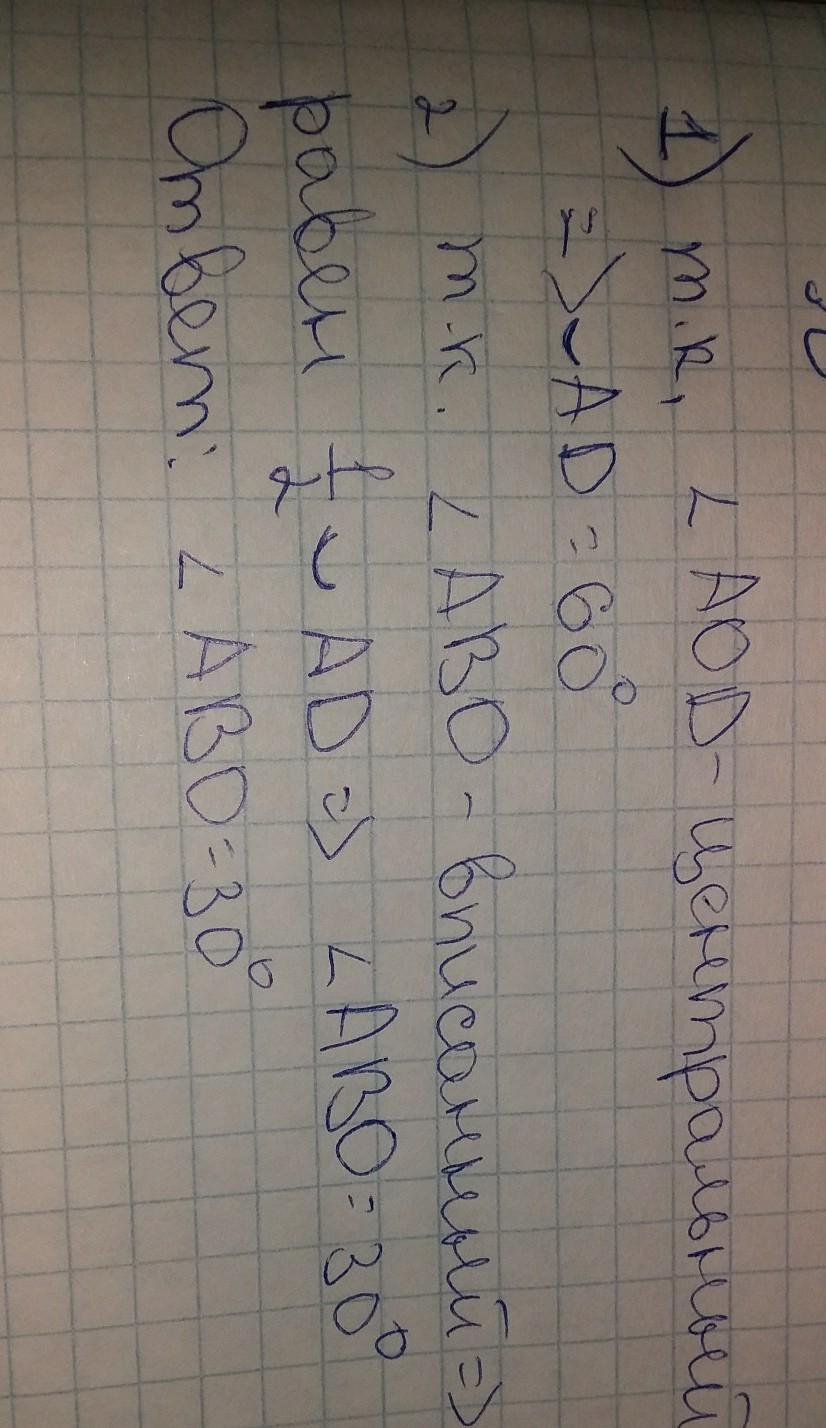 1) т.к, ∠AOD - центральный
=> ◡AD = 60°
2) т.к. ∠ABO - вписанный =>
равен 1/2 ◡AD => ∠ABO = 30°
Ответ: ∠ABO = 30°